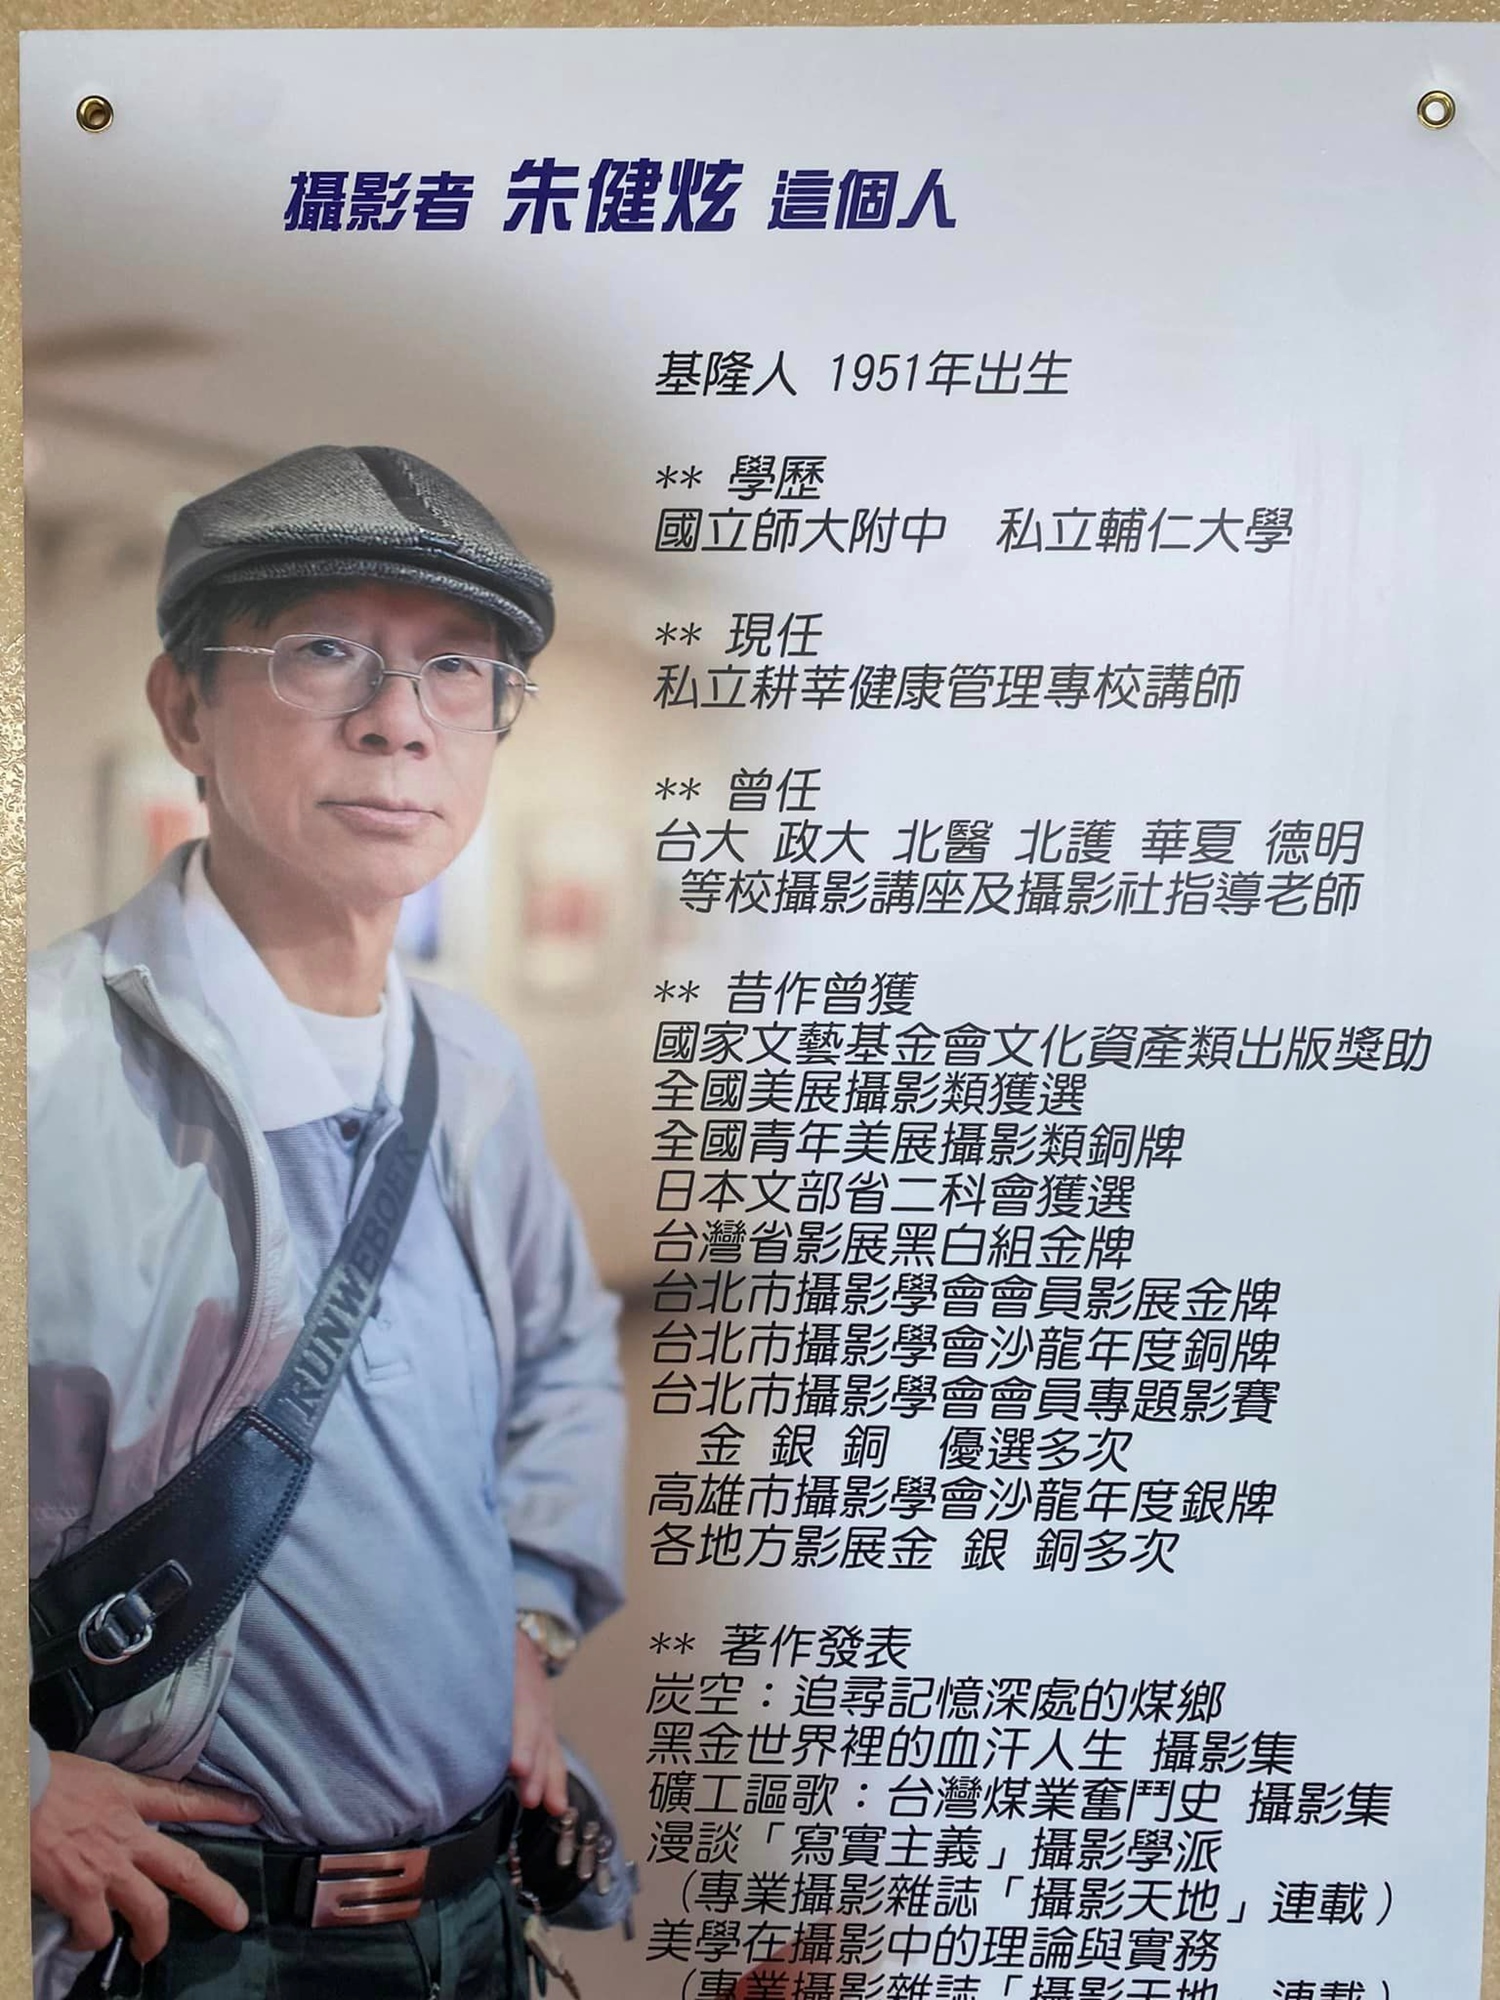 攝影者 朱健炫 這個人
基隆人 1951年出生
** 學歷
國立師大附中 私立輔仁大學
** 現任
私立耕莘健康管理專校講師
** 曾任
台大 政大 北醫 北護 華夏 德明
等校攝影講座及攝影社指導老師
** 昔作曾獲
國家文藝基金會文化資產類出版獎助
全國美展攝影類獲選
全國青年美展攝影類銅牌
日本文部省二科會獲選
台灣省影展黑白組金牌
台北市攝影學會會員影展金牌
台北市攝影學會沙龍年度銅牌
台北市攝影學會會員專題影賽
金 銀 銅 優選多次
高雄市攝影學會沙龍年度銀牌
各地方影展金 銀 銅多次
** 著作發表
炭空：追尋記憶深處的煤鄉
黑金世界裡的血汗人生 攝影集
礦工謳歌：台灣煤業奮鬥史 攝影集
漫談「寫實主義」攝影學派
(專業攝影雜誌「攝影天地」連載)
美學在攝影中的理論與實務
(專業攝影雜誌「攝影天地」連載)